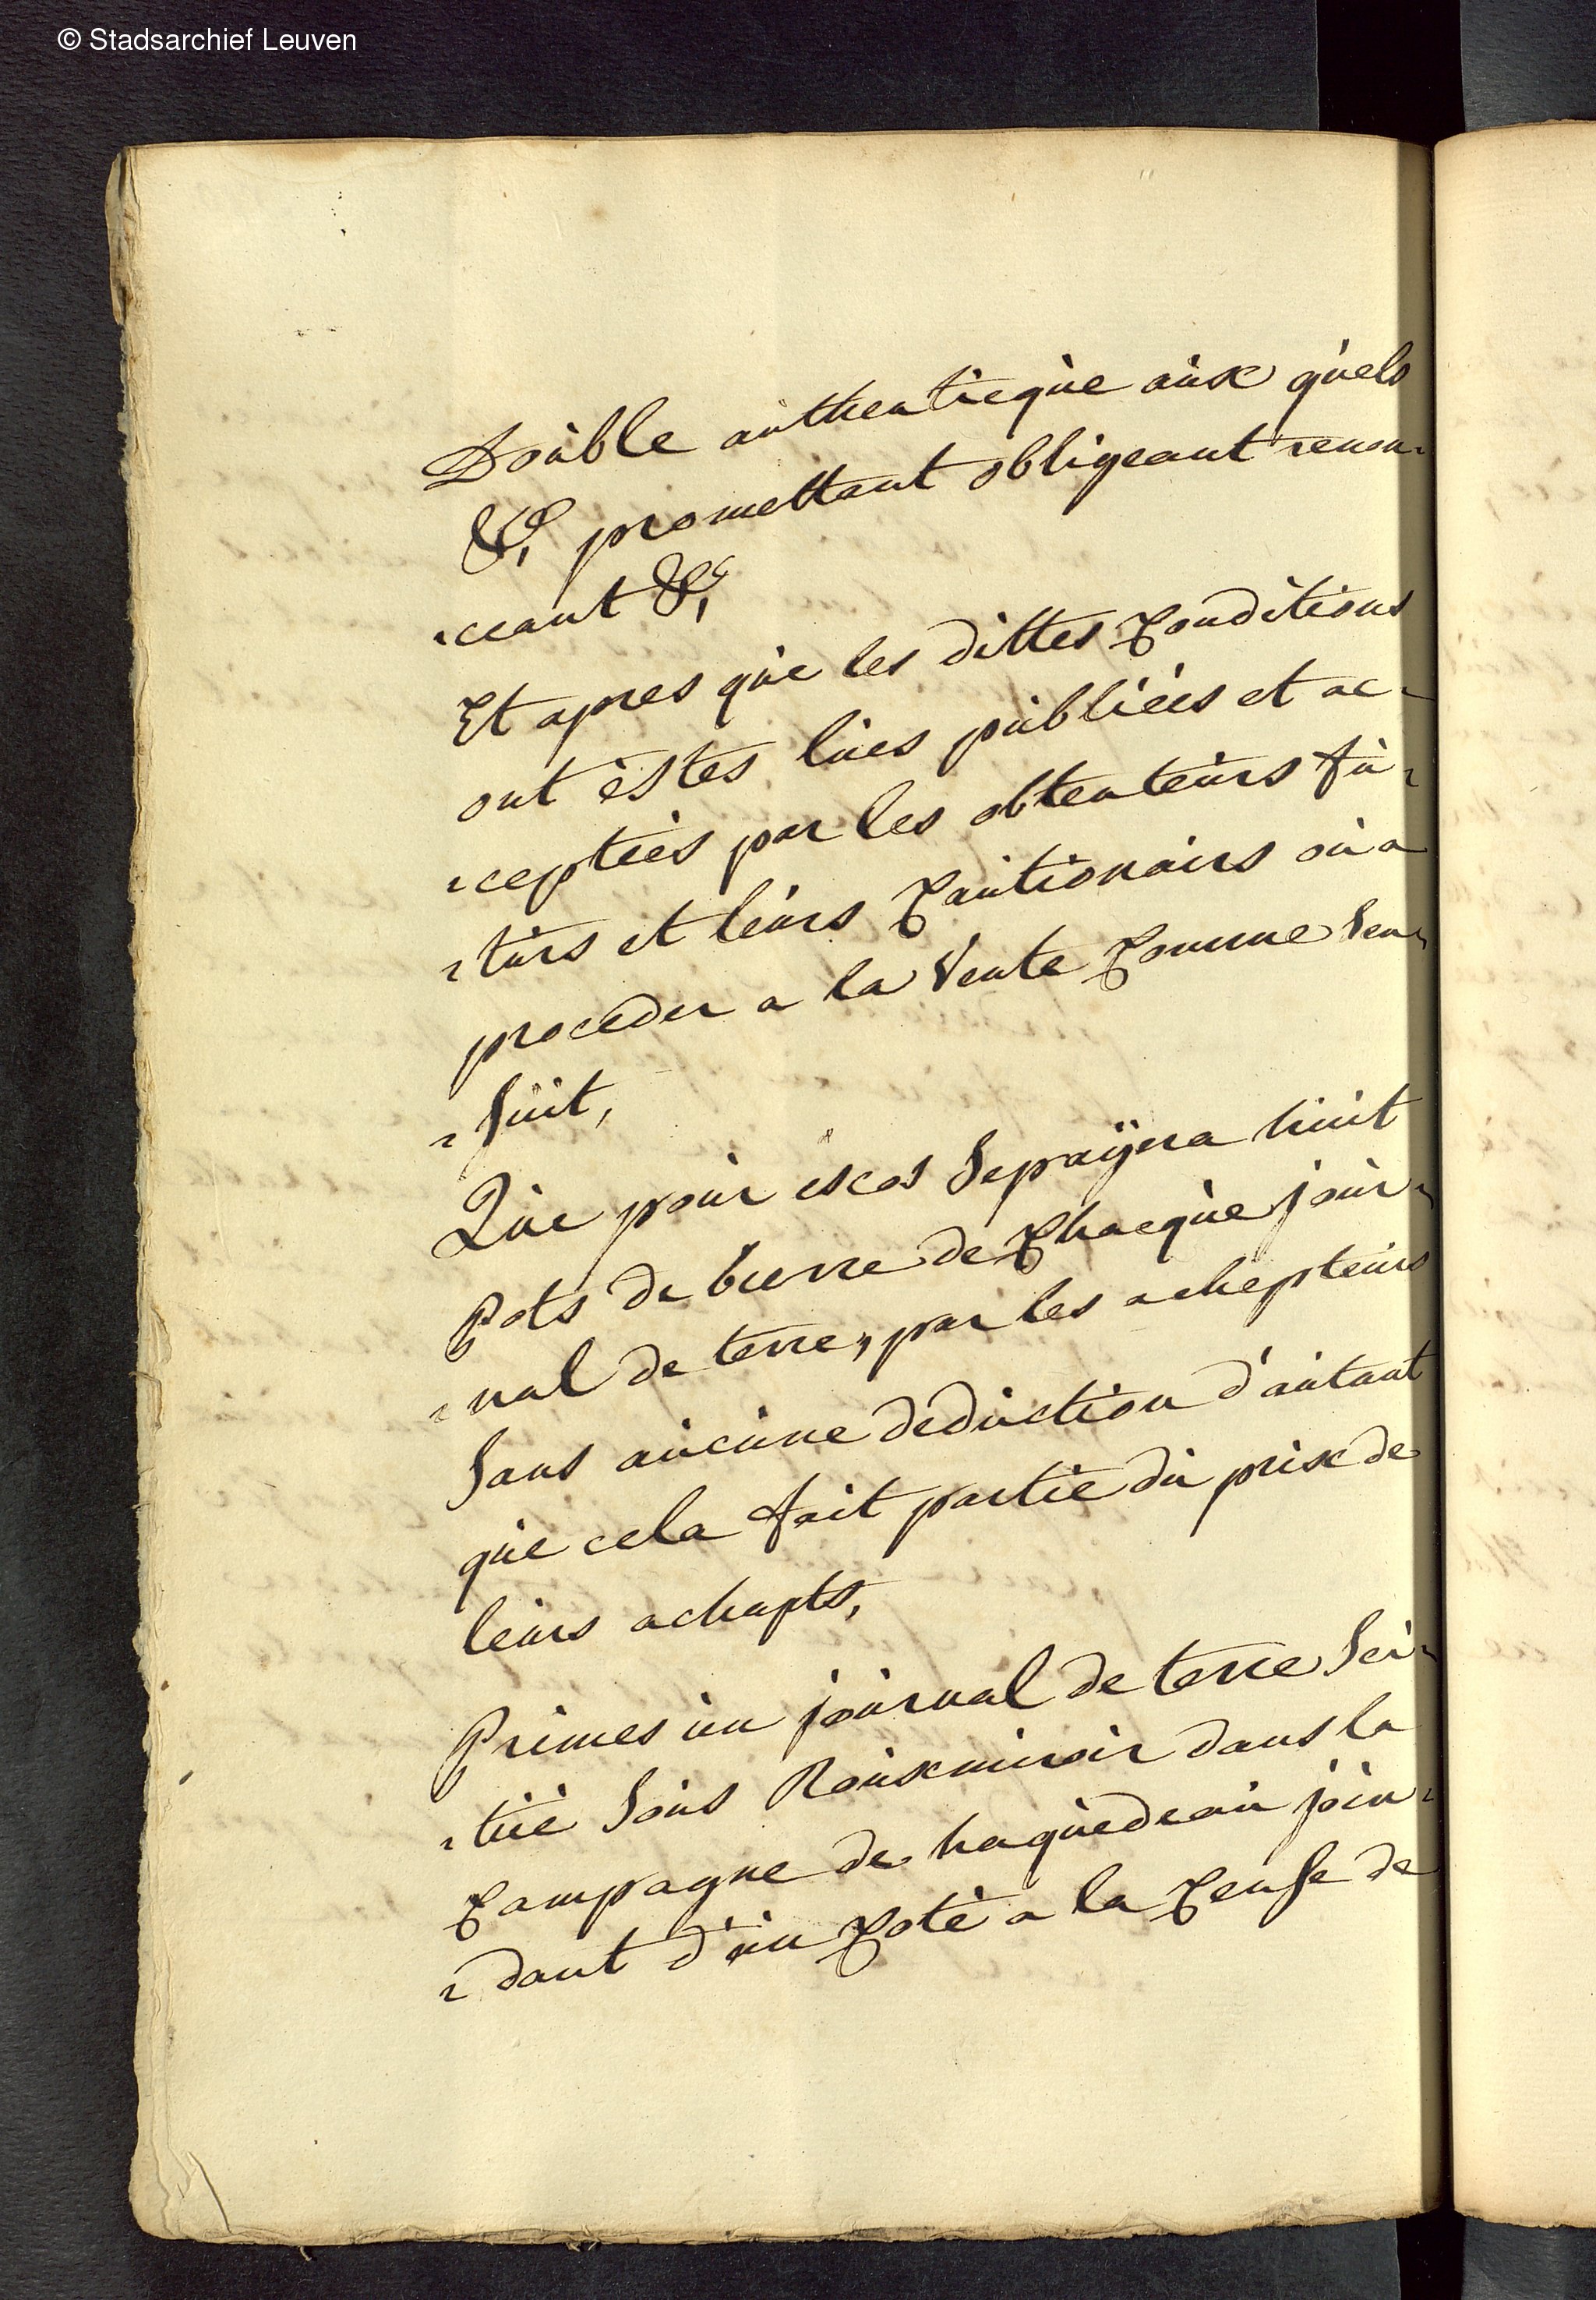 © Stadsarchief Leuven
Double authenticque aux quels
&c, promettant obligeant renon-
-ceant &c,
Et apres que les dittes Conditions
ont èstes lues publiéés et ac-
-ceptéés par les obtenteurs fu-
-turs et leurs Cautionairs on a
proceder a la Vente Comme s'en-
-suit,
Que pour escos se payera huit
Pots de bierre de Chacque jour-
-nal de terre, par les achepteurs
sans aucune deduction d'autant
que cela fait partie du prix de
leurs achapts,
Primes un journal de terre sci-
-tué sous Rouxmiroir dans la
Campagne de haquedeau join-
-dant d'un Coté a la Cense de